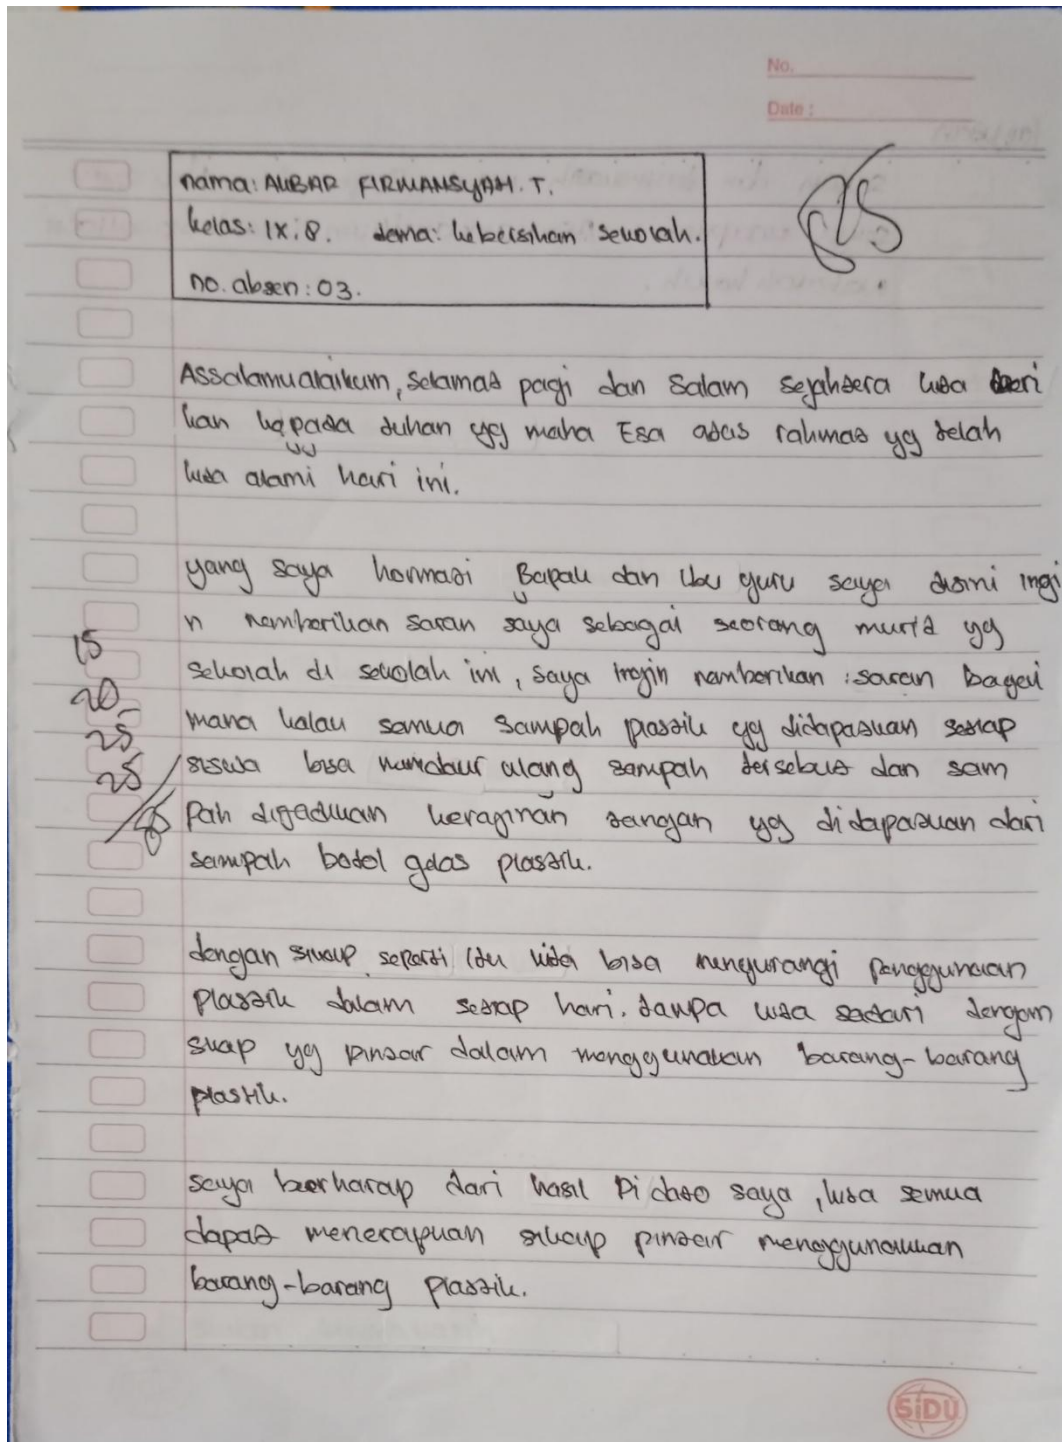 No.
Date :
nama: AKBAR FIRMANSYAH. T.
kelas: IX.8. tema: kebersihan sekolah.
no. absen: 03.
85
Assalamualaikum, selamat pagi dan salam sejahtera kita beri
kan kepada tuhan yg maha Esa atas rahmat yg telah
kita alami hari ini.
yang saya hormati Bapak dan ibu guru saya disini ingi
n memberikan saran saya sebagai seorang murid yg
sekolah di sekolah ini, saya ingin memberikan saran bagai
mana kalau semua sampah plastik yg didapatkan setiap
siswa bisa mendaur ulang sampah tersebut dan sam
pah dijadikan kerajinan tangan yg didapatkan dari
sampah botol gelas plastik.
15
20
25
25
dengan sikap seperti itu kita bisa mengurangi penggunaan
plastik dalam setiap hari. tanpa kita sadari dengan
sikap yg pintar dalam menggunakan barang-barang
plastik.
saya berharap dari hasil Pidato saya, kita semua
dapat menerapkan sikap pintar menggunakan
barang-barang plastik.
SiDU